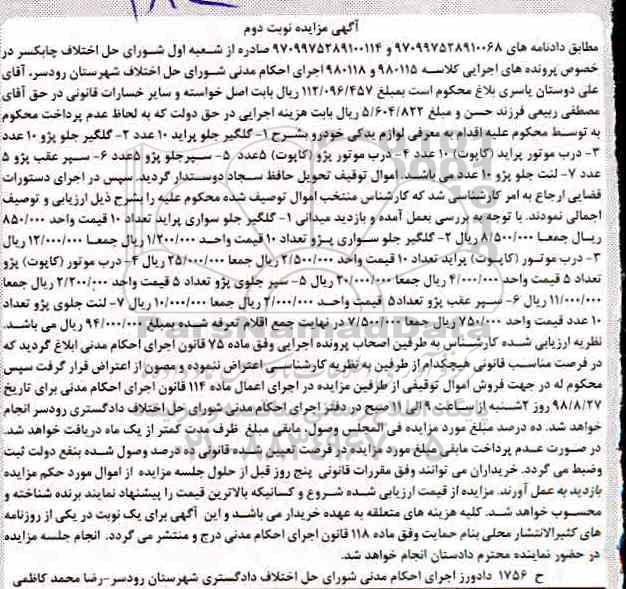 آگهی مزایده نوبت دوم
مطابق دادنامه های ۹۷۰۹۹۷۵۲۸۹۱۰۰۶۸ و ۹۷۰۹۹۷۵۲۸۹۱۰۰۱۱۴ صادره از شعبه اول شورای حل اختلاف چابکسر در
خصوص پرونده های اجرایی کلاسه ۹۸۰۱۱۵ و ۹۸۰۱۱۸ اجرای احکام مدنی شورای حل اختلاف شهرستان رودسر، آقای
علی دوستان یاسری بلاغ محکوم است بمبلغ ۱۱۲/۰۹۶/۴۵۷ ریال بابت اصل خواسته و سایر خسارات قانونی در حق آقای
مصطفی ربیعی فرزند حسن و مبلغ ۵/۶۰۴/۸۲۲ ریال بابت هزینه اجرایی در حق دولت که به لحاظ عدم پرداخت محکوم
به توسط محکوم علیه اقدام به معرفی لوازم یدکی خودرو بشرح ۱- گلگیر جلو پراید ۱۰ عدد ۲- گلگیر جلو پژو ۱۰ عدد
۳- درب موتور پراید (کاپوت) ۱۰ عدد ۴- درب موتور پژو (کاپوت) ۵عدد ۵- سپرجلو پژو ۵عدد ۶- سپر عقب پژو ۵
عدد ۷- لنت جلو پژو ۱۰ عدد می باشد. اموال توقیف تحویل حافظ سجاد دوستدار گردید. سپس در اجرای دستورات
قضایی ارجاع به امر کارشناسی شد که کارشناس منتخب اموال توصیف شده محکوم علیه را بشرح ذیل ارزیابی و توصیف
اجمالی نمودند. با توجه به بررسی بعمل آمده و بازدید میدانی ۱- گلگیر جلو سواری پراید تعداد ۱۰ قیمت واحد ۸۵۰/۰۰۰
ریال جمعا ۸/۵۰۰/۰۰۰ ریال ۲- گلگیر جلو سواری پژو تعداد ۱۰ قیمت واحد ۱/۲۰۰/۰۰۰ ریال جمعا ۱۲/۰۰۰/۰۰۰ ریال
۳- درب موتور (کاپوت) پراید تعداد ۱۰ قیمت واحد ۲/۵۰۰/۰۰۰ ریال جمعا ۲۵/۰۰۰/۰۰۰ ریال ۴- درب موتور (کاپوت) پژو
تعداد ۵ قیمت واحد ۴/۰۰۰/۰۰۰ ریال جمعا ۲۰/۰۰۰/۰۰۰ ریال ۵- سپر جلوی پژو تعداد ۵ قیمت واحد ۲/۲۰۰/۰۰۰ ریال جمعا
۱۱/۰۰۰/۰۰۰ ریال ۶- سپر عقب پژو تعداد۵ قیمت واحد ۲/۰۰۰/۰۰۰ ریال جمعا ۱۰/۰۰۰/۰۰۰ ریال ۷- لنت جلوی پژو تعداد
۱۰ عدد قیمت واحد ۷۵۰/۰۰۰ ریال جمعا ۷/۵۰۰/۰۰۰ در نهایت جمع اقلام تعرفه شده بمبلغ ۹۴/۰۰۰/۰۰۰ ریال می باشد.
نظریه ارزیابی شده کارشناس به طرفین اصحاب پرونده اجرایی وفق ماده ۷۵ قانون اجرای احکام مدنی ابلاغ گردید که
در فرصت مناسب قانونی هیچکدام از طرفین به نظریه کارشناسی اعتراض ننموده و مصون از اعتراض قرار گرفت سپس
محکوم له در جهت فروش اموال توقیفی از طرفین مزایده در اجرای اعمال ماده ۱۱۴ قانون اجرای احکام مدنی برای تاریخ
۹۸/۸/۲۷ روز ۲شنبه از ساعت ۹ الی ۱۱ صبح در دفتر اجرای احکام مدنی شورای حل اختلاف دادگستری رودسر انجام
خواهد شد. ده درصد مبلغ مورد مزایده فی المجلس وصول، مابقی مبلغ ظرف مدت کمتر از یک ماه دریافت خواهد شد.
در صورت عدم پرداخت مابقی مبلغ مورد مزایده در فرصت تعیین شده قانونی ده درصد وصول شده بنفع دولت ثبت
وضبط می گردد. خریداران می توانند وفق مقررات قانونی پنج روز قبل از حلول جلسه مزایده از اموال مورد حکم مزایده
بازدید به عمل آورند. مزایده از قیمت ارزیابی شده شروع و کسانیکه بالاترین قیمت را پیشنهاد نمایند برنده شناخته و
محسوب خواهد شد. کلیه هزینه های متعلقه به عهده خریدار می باشد و این آگهی برای یک نوبت در یکی از روزنامه
های کثیرالانتشار محلی بنام حمایت وفق ماده ۱۱۸ قانون اجرای احکام مدنی درج و منتشر می گردد. انجام جلسه مزایده
در حضور نماینده محترم دادستان انجام خواهد شد.
ح ۱۷۵۶ دادورز اجرای احکام مدنی شورای حل اختلاف دادگستری شهرستان رودسر-رضا محمد کاظمی